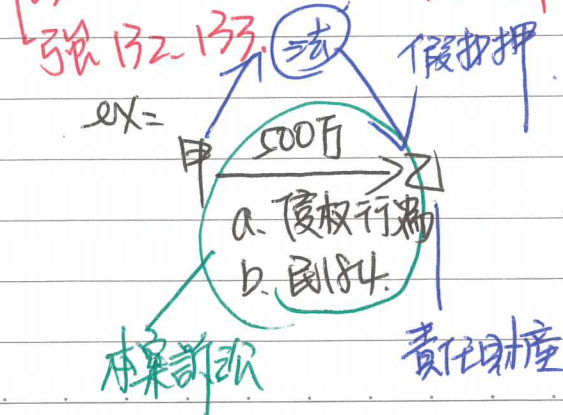 強132、133.
法
假扣押
ex=
甲 500万 乙
a. 侵权行為
b. 民184.
本案訴訟
責任財產